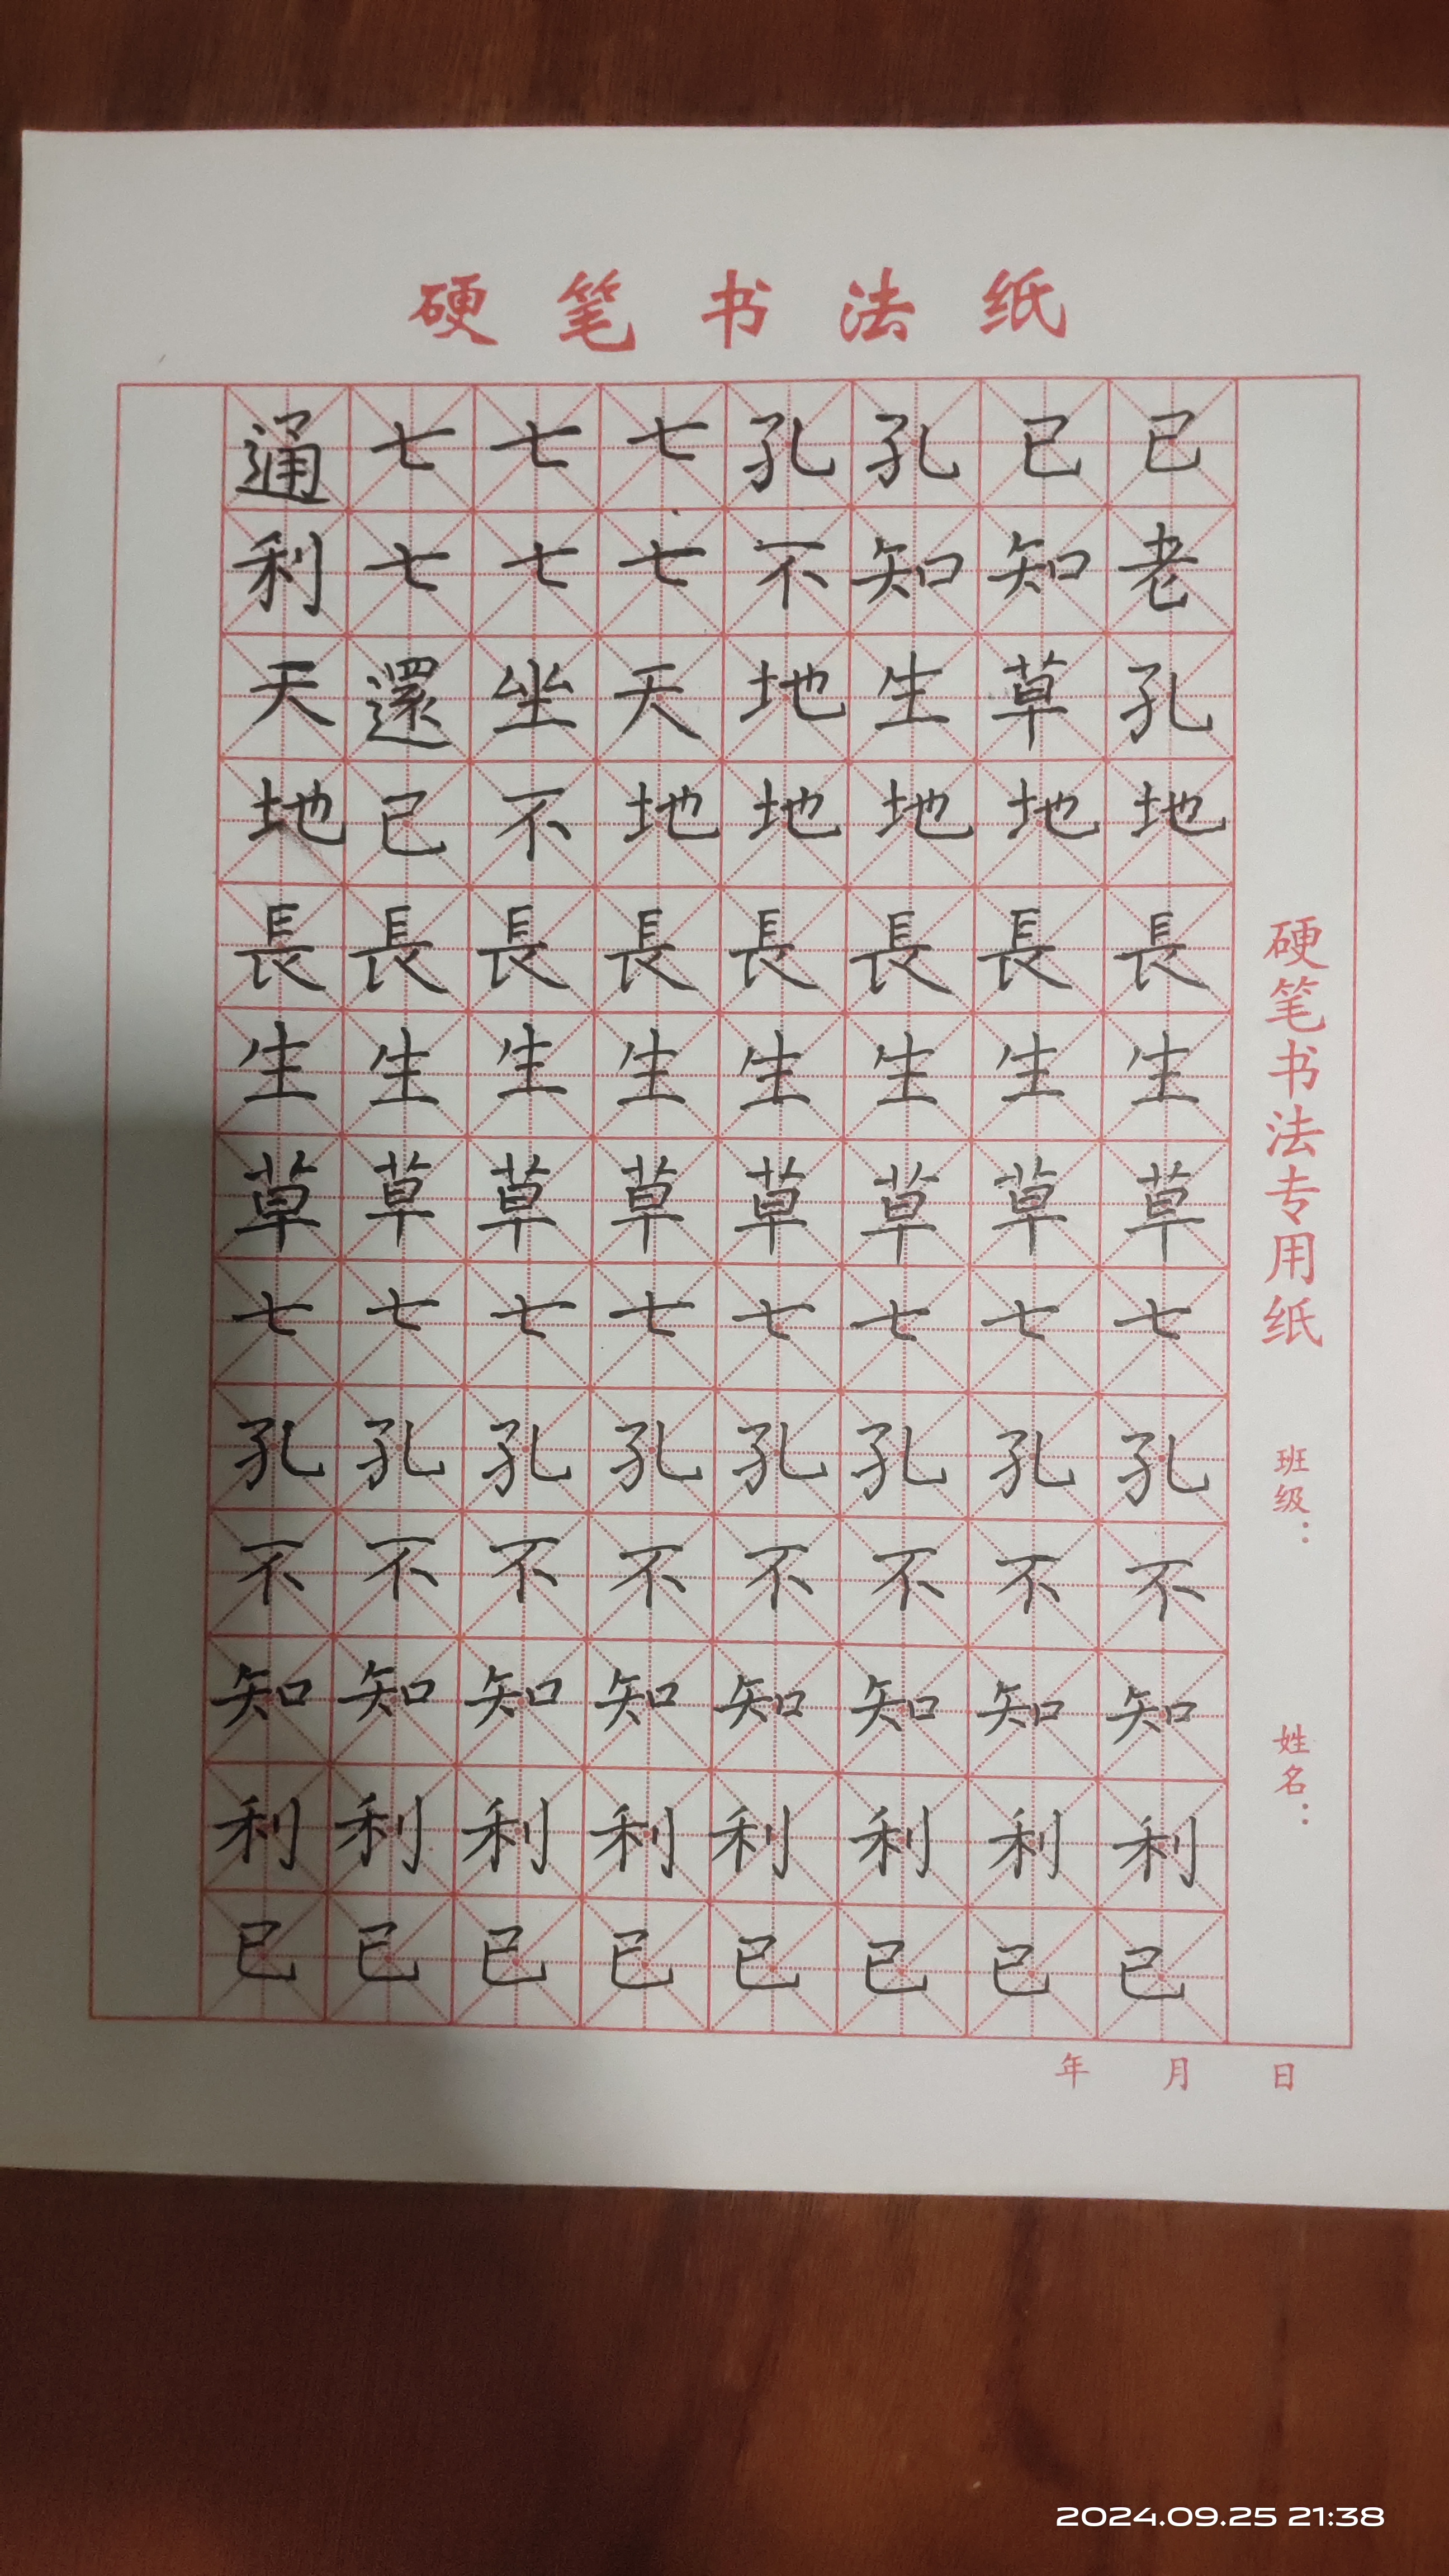 硬笔书法纸
通七七七孔孔已己
利七七七不知知老
天還坐天地生草孔
地己不地地地地地
長長長長長長長長
生生生生生生生生
草草草草草草草草
七七七七七七七七
孔孔孔孔孔孔孔孔
不不不不不不不不
知知知知知知知知
利利利利利利利利
已已已已已已己己
硬笔书法专用纸
班级：
姓名：
年 月 日
2024.09.25 21:38